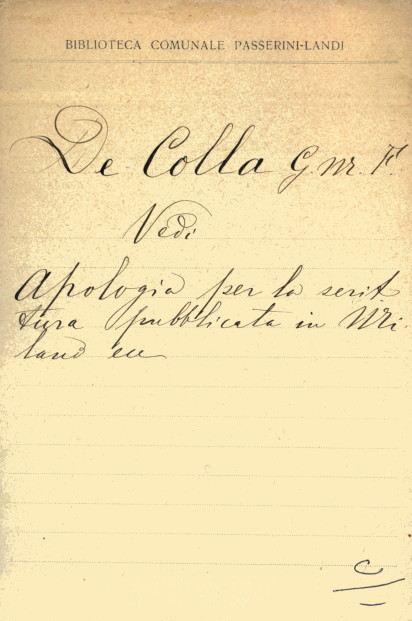 BIBLIOTECA COMUNALE PASSERINI-LANDI
De Colla G. M. F.
Vedi
Apologia per la scrit
tura pubblicata in Mi
lano ecc
C